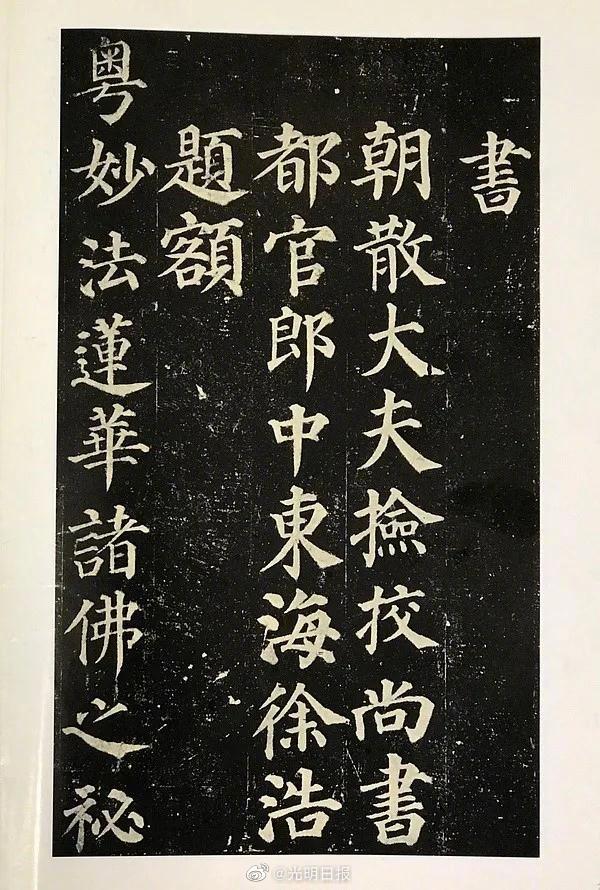 書
朝散大夫撿挍尚書
都官郎中東海徐浩
題額
粵妙法蓮華諸佛之祕
@光明日报